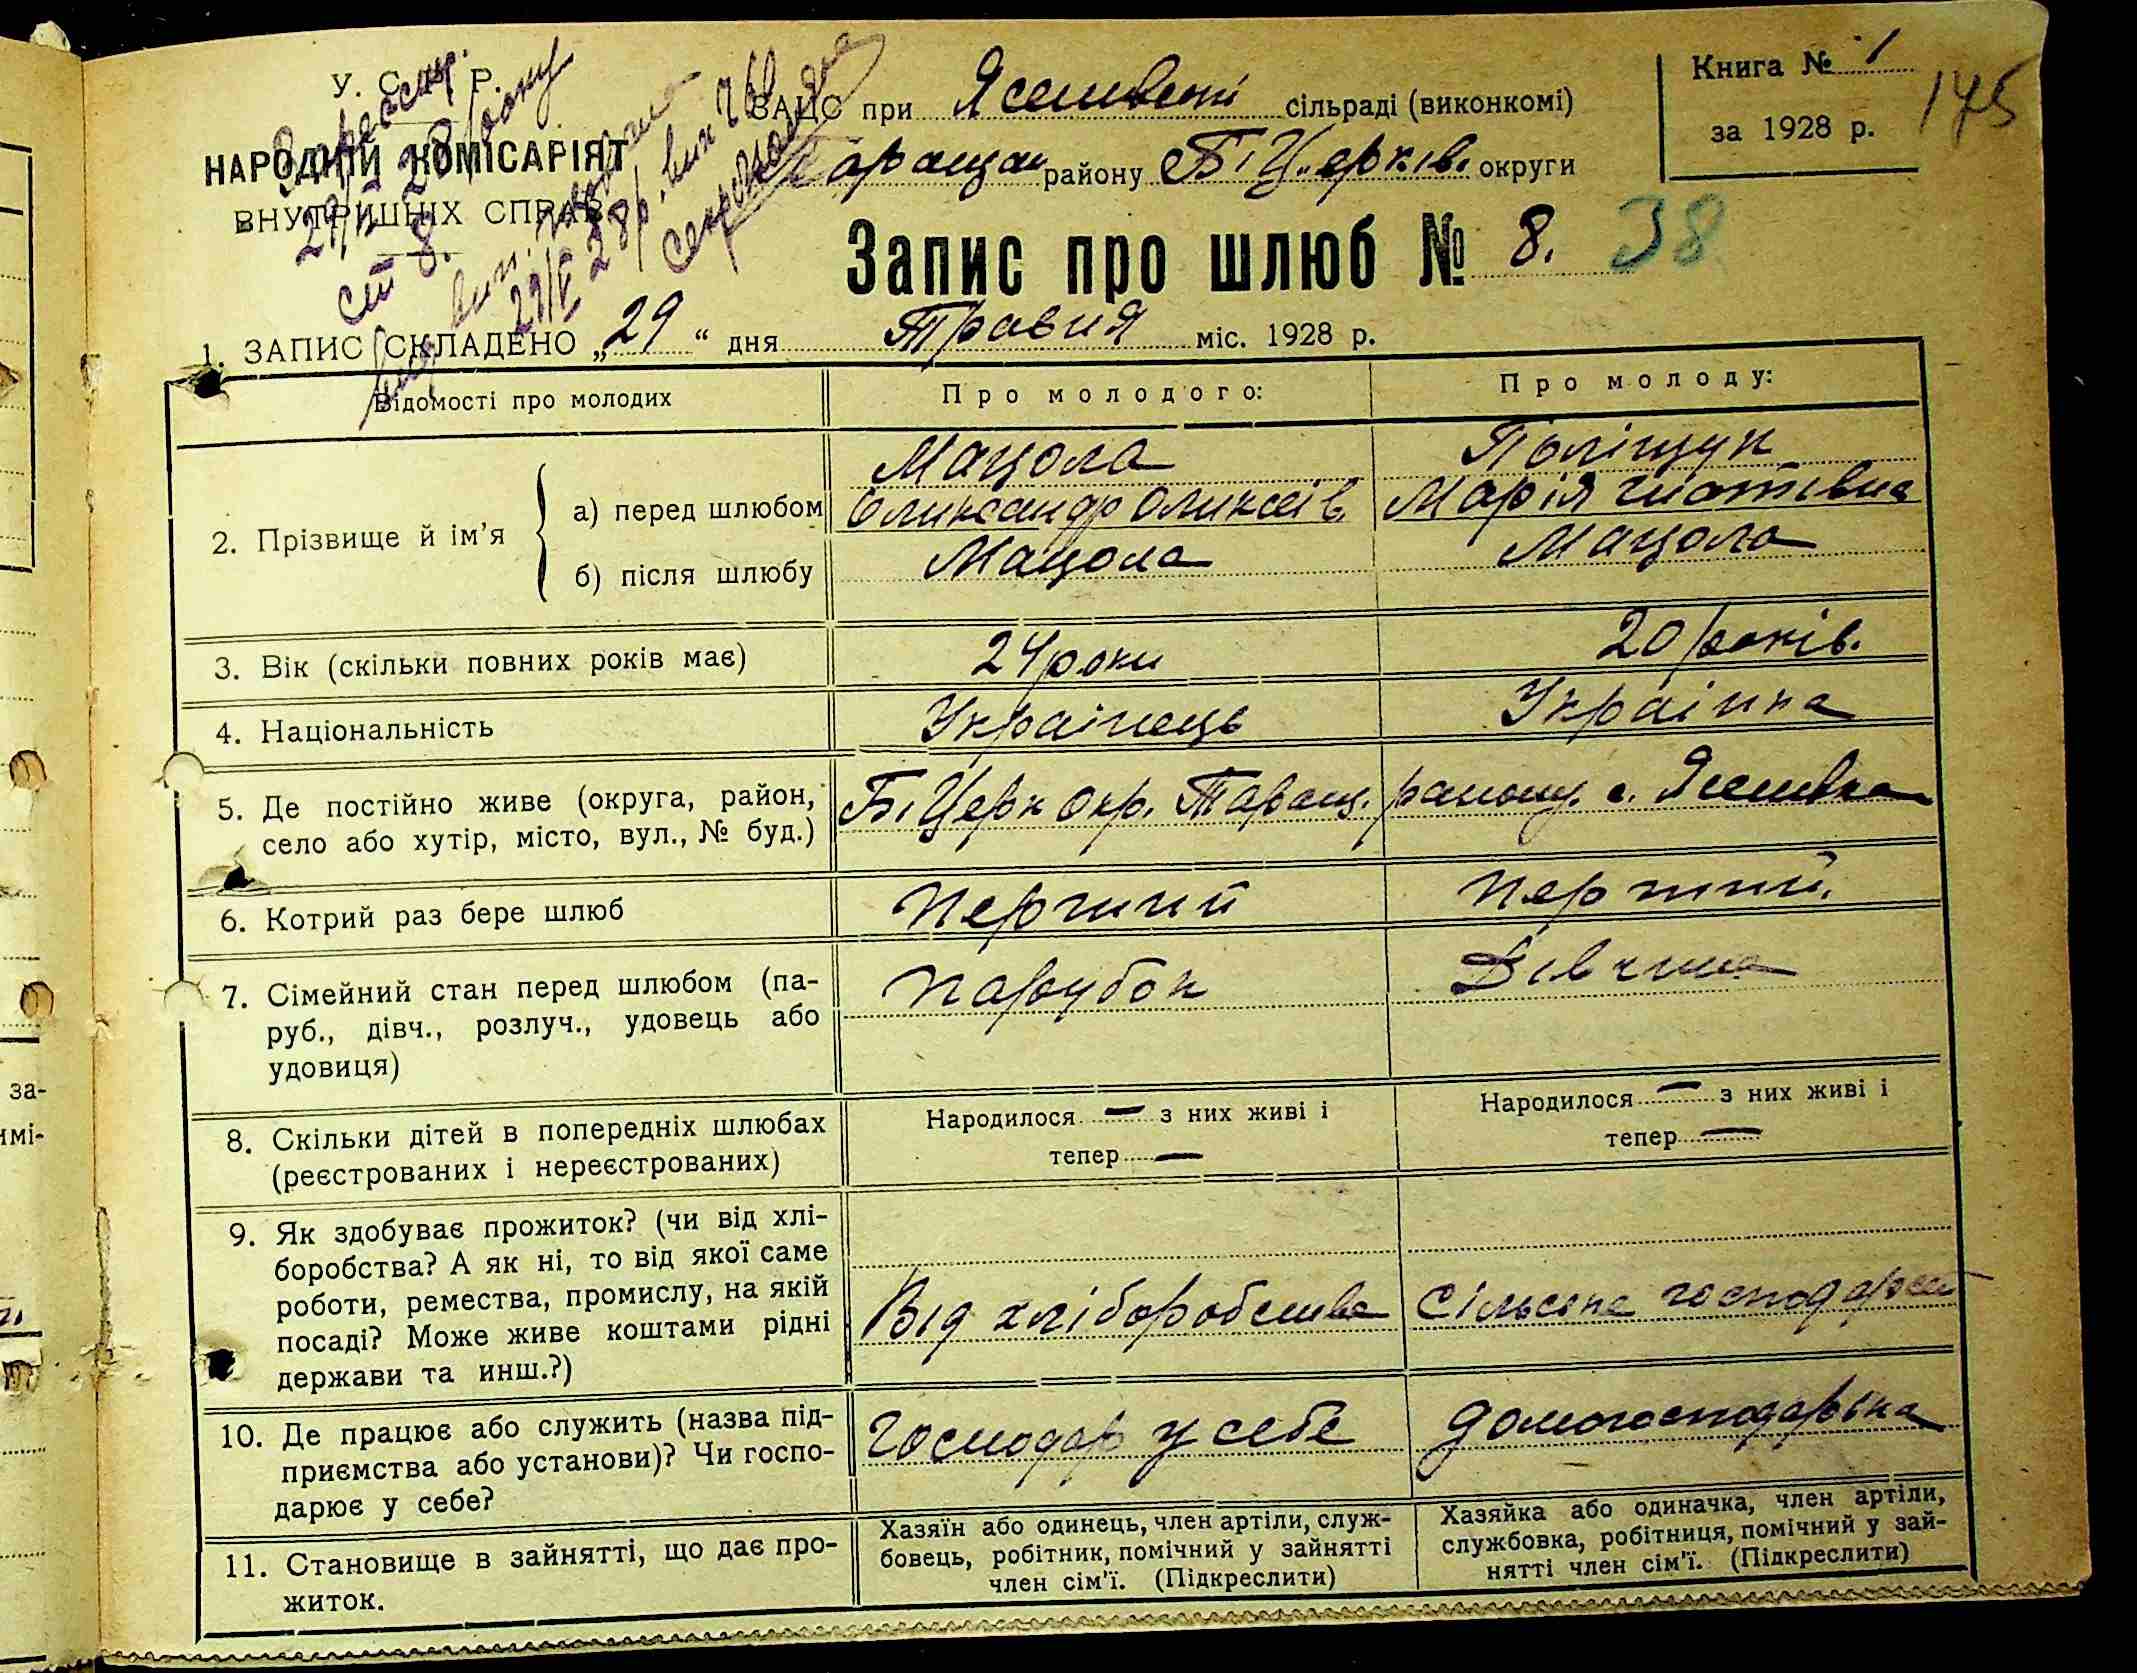 У. С. Р. Р.
НАРОДНІЙ КОМІСАРІЯТ
ВНУТРІШНІХ СПРАВ
ЗАЦС при Ясенівській сільраді (виконкомі)
Таращан району Б.Церків. округи
Книга № 1
за 1928 р.
145
Запис про шлюб № 8. 38
1. ЗАПИС СКЛАДЕНО „29“ дня Травня міс. 1928 р.
Відомості про молодих
Про молодого:
Про молоду:
2. Прізвище й ім’я
а) перед шлюбом
Мацола
Поліщук
Олександр Олексіїв.
Марія
б) після шлюбу
Мацола
Мацола
3. Вік (скільки повних років має)
24 роки
20 років.
4. Національність
Українець
Українка
5. Де постійно живе (округа, район,
село або хутір, місто, вул., № буд.)
Б.Церк окр. Таращ. району. с. Ясенівка
6. Котрий раз бере шлюб
Перший
Перший.
7. Сімейний стан перед шлюбом (па-
руб., дівч., розлуч., удовець або
удовиця)
Парубок
Дівчина
8. Скільки дітей в попередніх шлюбах
(реєстрованих і нереєстрованих)
Народилося — з них живі і
тепер —
Народилося — з них живі і
тепер —
9. Як здобуває прожиток? (чи від хлі-
боробства? А як ні, то від якої саме
роботи, ремества, промислу, на якій
посаді? Може живе коштами рідні
держави та инш.?)
Від хліборобства
Сільське господарст
10. Де працює або служить (назва під-
приємства або установи)? Чи госпо-
дарює у себе?
Господар у себе
Домогосподарька
11. Становище в зайнятті, що дає про-
житок.
Хазяїн або одинець, член артіли, служ-
бовець, робітник, помічний у зайнятті
член сім’ї. (Підкреслити)
Хазяйка або одиначка, член артіли,
службовка, робітниця, помічний у зай-
нятті член сім’ї. (Підкреслити)